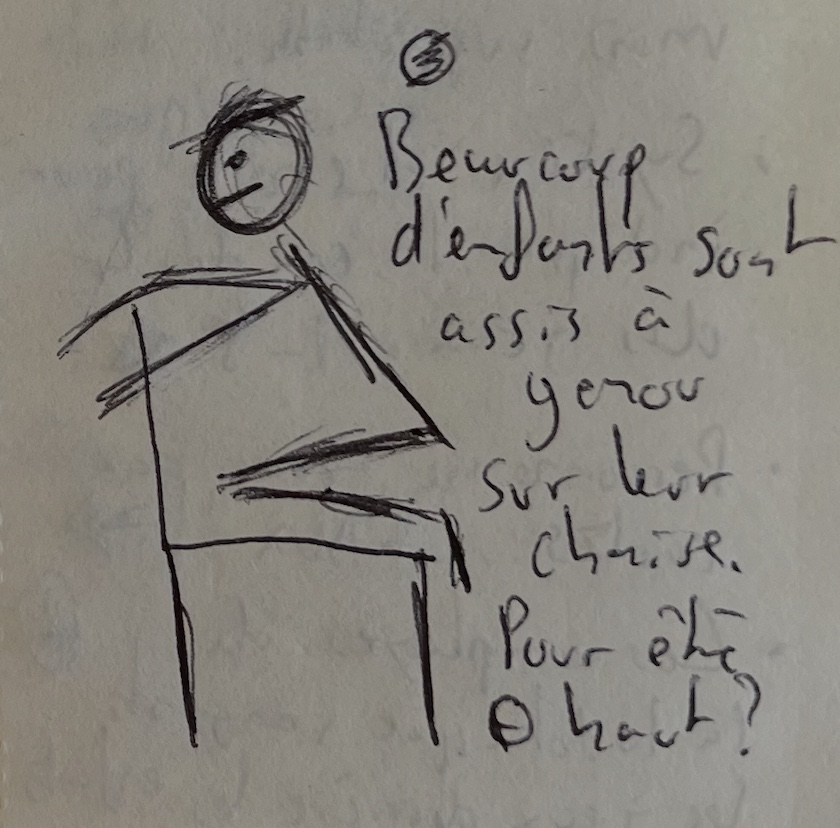 ③
Beaucoup
d'enfants sont
assis à
genou
sur leur
chaise.
Pour être
⊕ haut ?